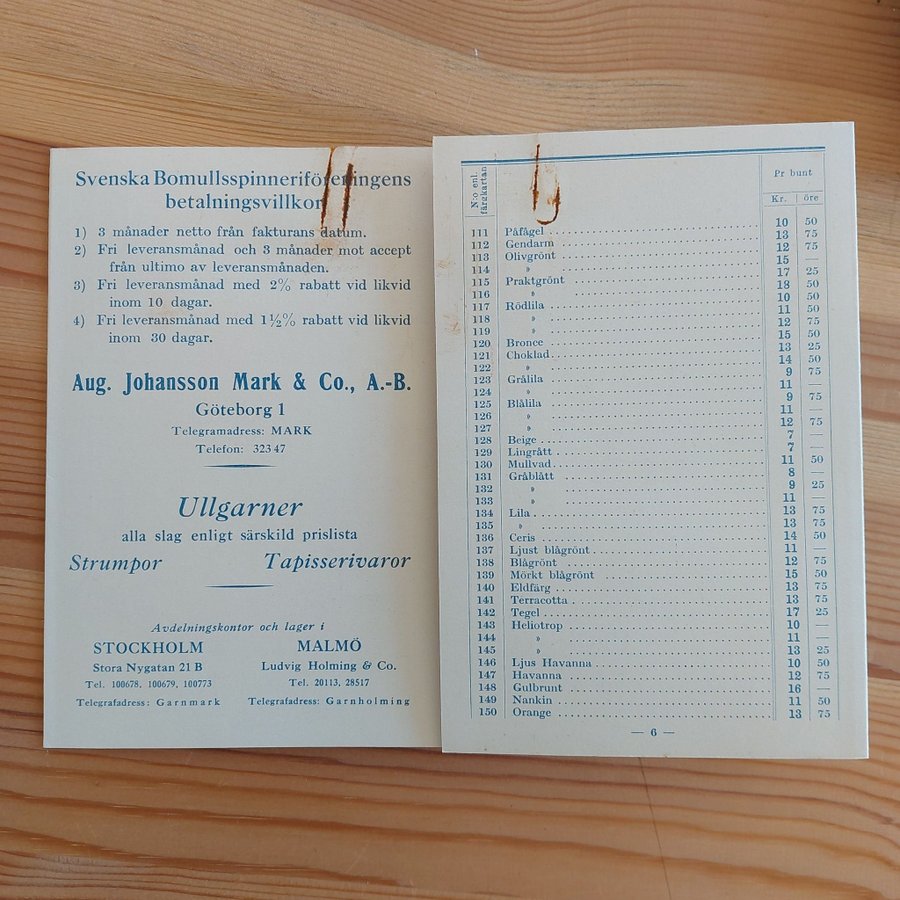 Svenska Bomullsspinneriföreningens
betalningsvillkor
1) 3 månader netto från fakturans datum.
2) Fri leveransmånad och 3 månader mot accept
från ultimo av leveransmånaden.
3) Fri leveransmånad med 2% rabatt vid likvid
inom 10 dagar.
4) Fri leveransmånad med 1½% rabatt vid likvid
inom 30 dagar.
Aug. Johansson Mark & Co., A.-B.
Göteborg 1
Telegramadress: MARK
Telefon: 323 47
Ullgarner
alla slag enligt särskild prislista
Strumpor Tapisserivaror
Avdelningskontor och lager i
STOCKHOLM
Stora Nygatan 21 B
Tel. 100678, 100679, 100773
Telegrafadress: Garnmark
MALMÖ
Ludvig Holming & Co.
Tel. 20113, 28517
Telegrafadress: Garnholming
N:o enl.
färgkartan
Pr bunt
Kr. öre
111 Påfågel 10 50
112 Gendarm 13 75
113 Olivgrönt 12 75
114 » 15 —
115 Praktgrönt 17 25
116 » 18 50
117 Rödlila 10 50
118 » 11 50
119 » 12 75
120 Bronce 15 50
121 Choklad 13 25
122 » 14 50
123 Grålila 9 75
124 » 11 —
125 Blålila 9 75
126 » 11 —
127 » 12 75
128 Beige 7 —
129 Lingrått 7 —
130 Mullvad 11 50
131 Gråblått 8 —
132 » 9 25
133 » 11 —
134 Lila 13 75
135 » 13 75
136 Ceris 14 50
137 Ljust blågrönt 11 —
138 Blågrönt 12 75
139 Mörkt blågrönt 15 50
140 Eldfärg 13 75
141 Terracotta 13 75
142 Tegel 17 25
143 Heliotrop 10 —
144 » 11 —
145 » 13 25
146 Ljus Havanna 10 50
147 Havanna 12 75
148 Gulbrunt 16 —
149 Nankin 11 50
150 Orange 13 75
— 6 —